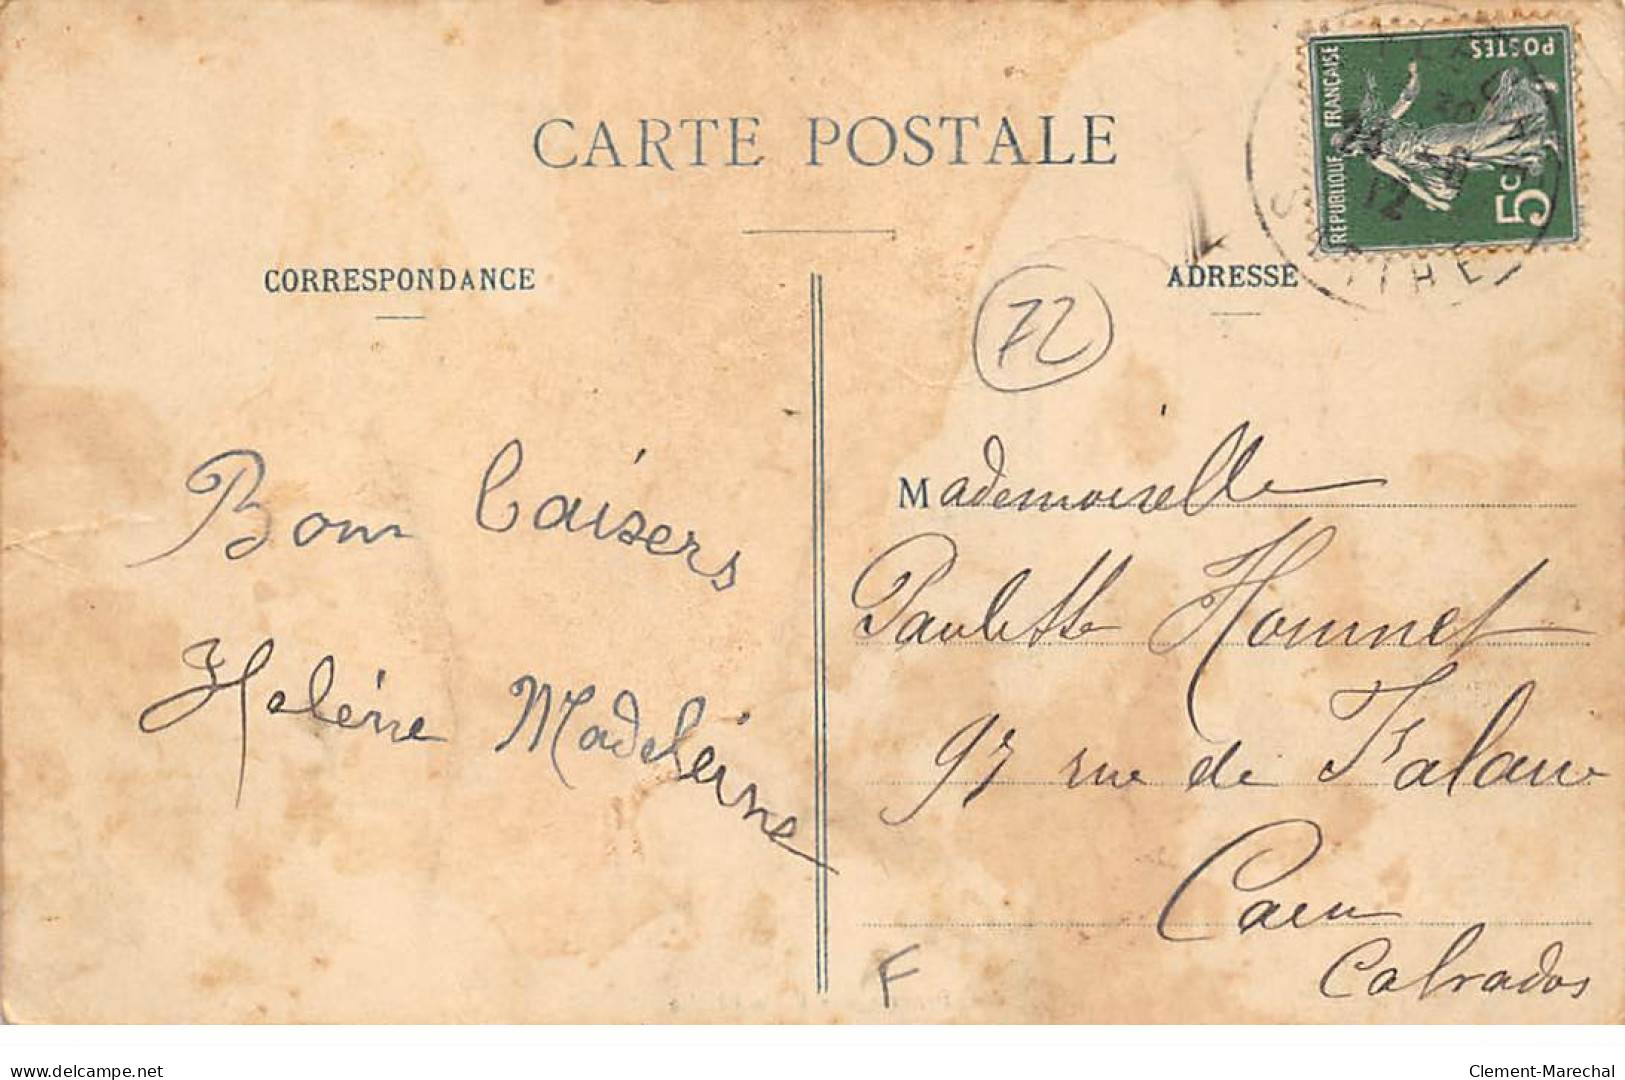 CARTE POSTALE
CORRESPONDANCE
ADRESSE
REPUBLIQUE FRANÇAISE
POSTES
5c
12
SARTHE
72
Bons baisers
Helène Madeleine
Mademoiselle
Paulette Hommet
97 rue de Falaise
Caen
Calvados
F
delcampe.net
Clement-Marechal